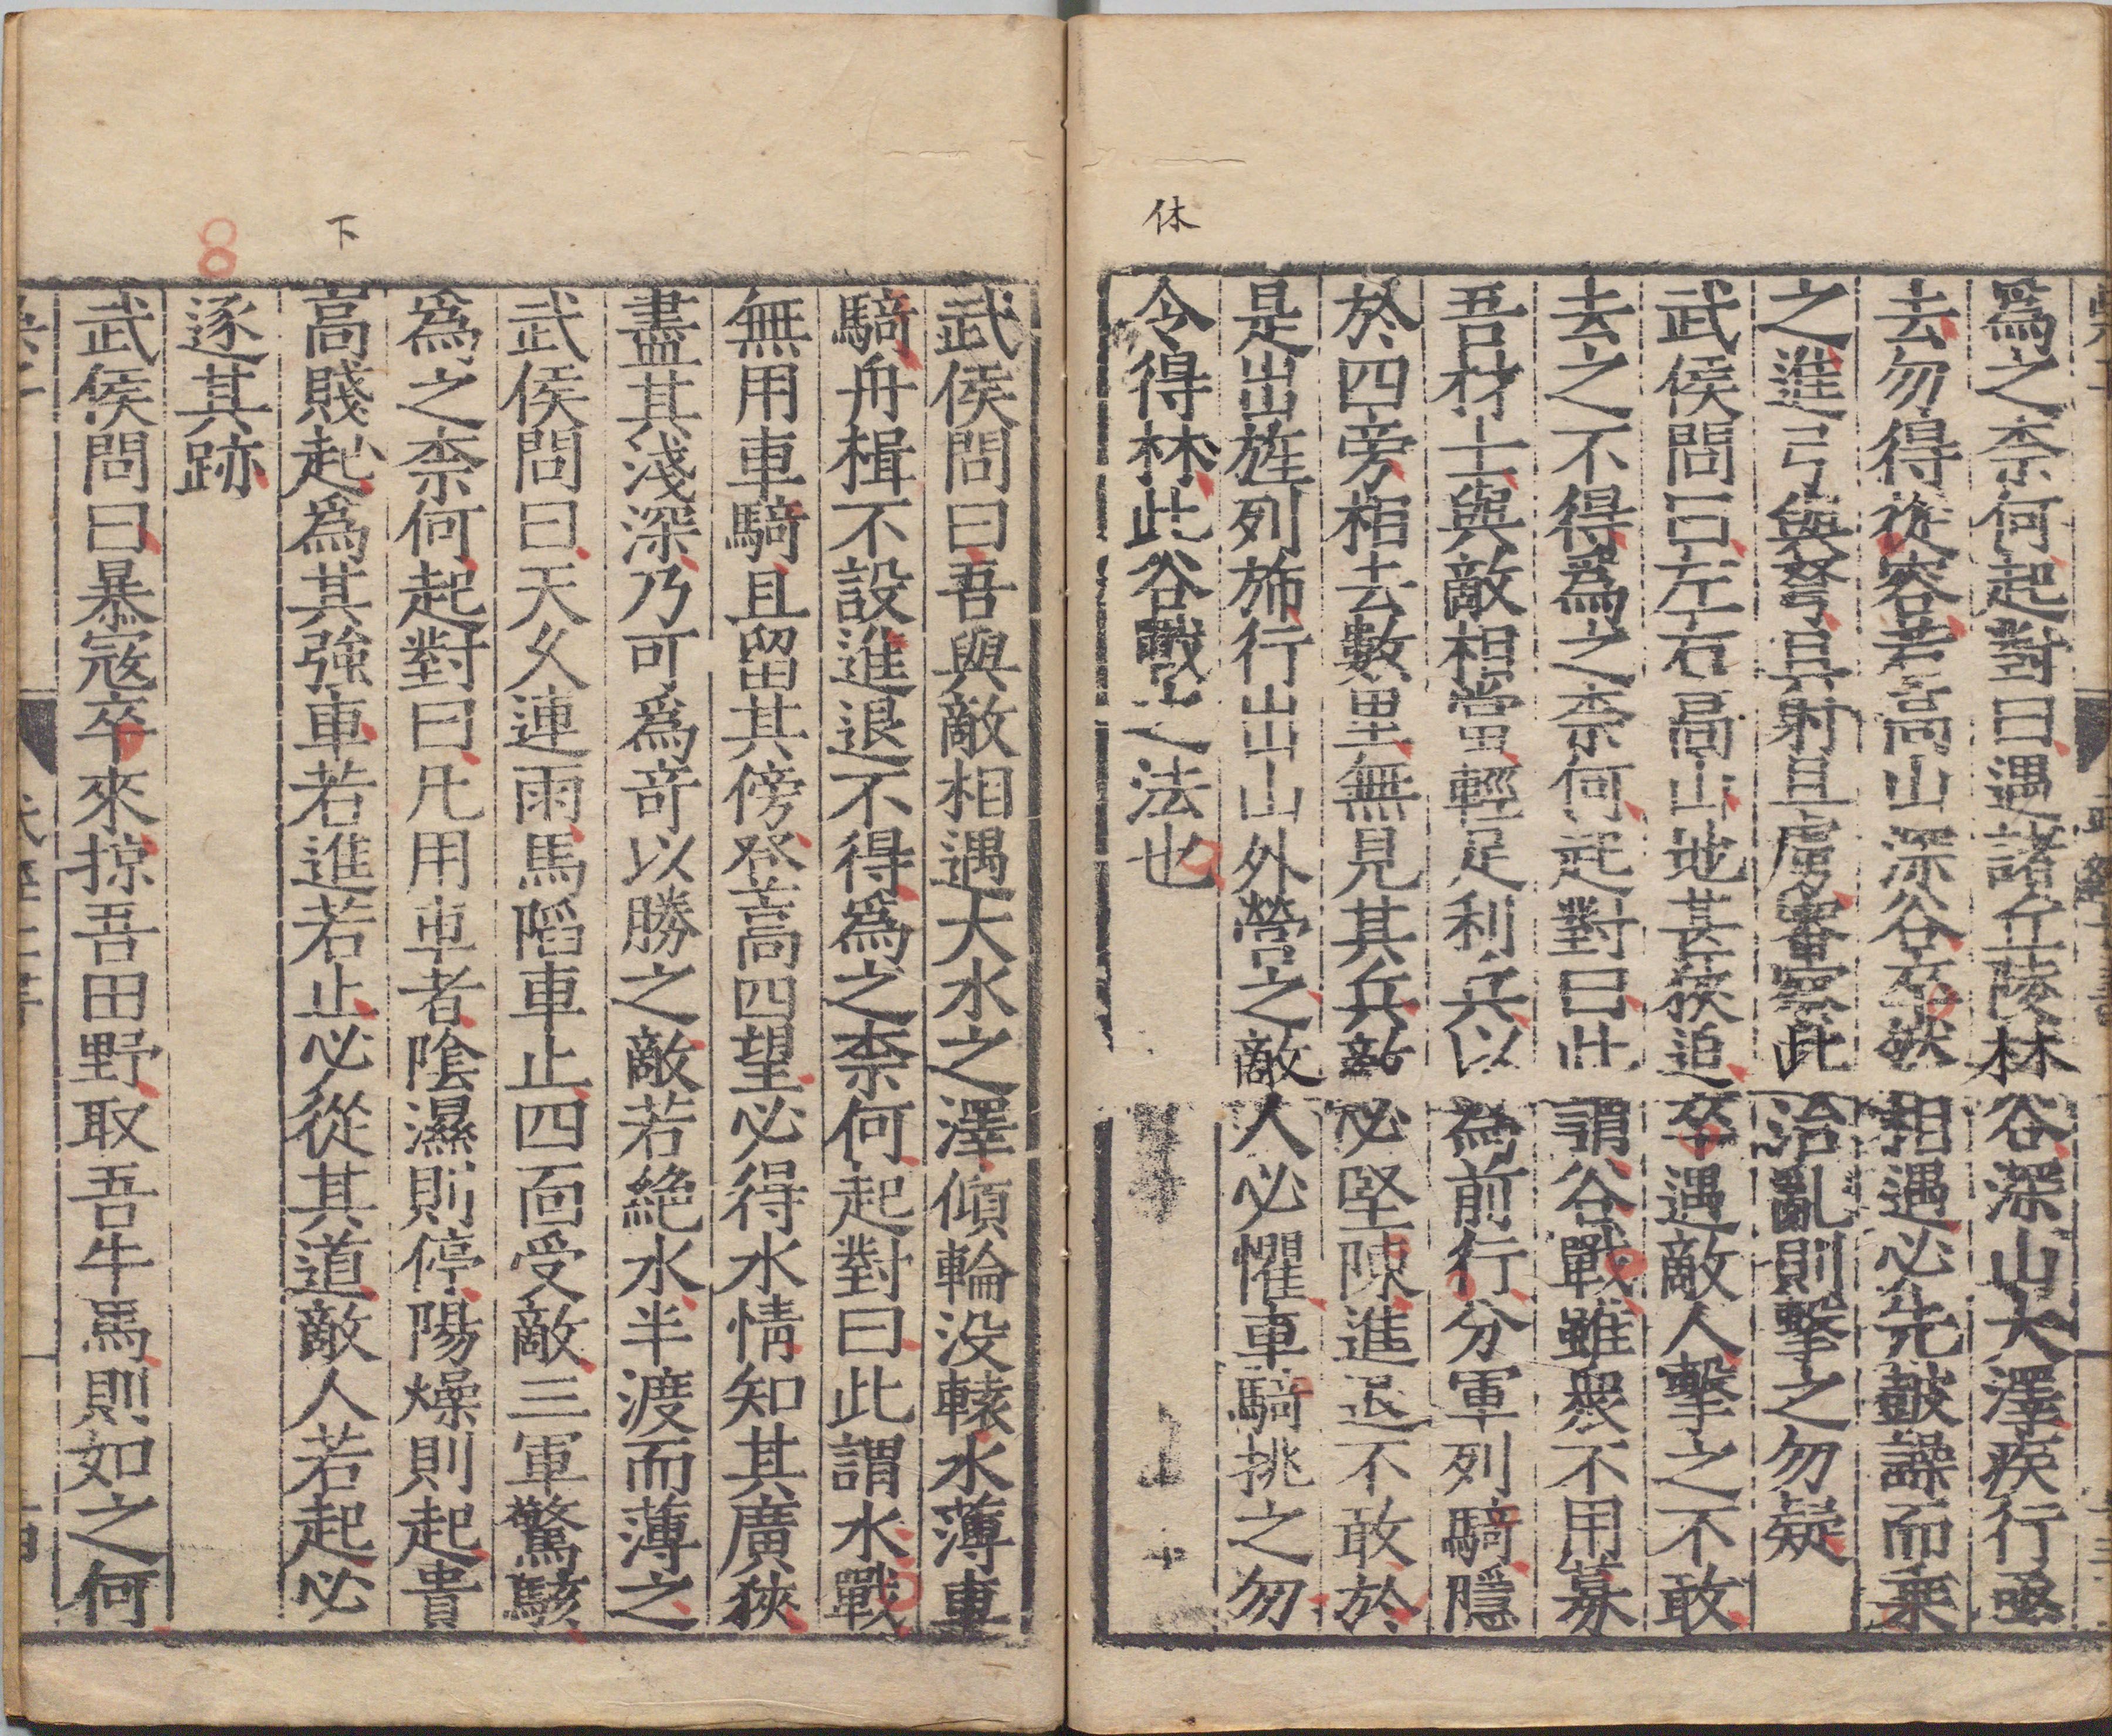 為之柰何起對曰遇諸丘陵林谷深山大澤疾行亟
去勿得從容若高山深谷卒然相遇必先鼓譟而乘
之進弓與弩且射且虜審察此治亂則擊之勿疑
武侯問曰左右高山地甚狹迫卒遇敵人擊之不敢
去之不得為之柰何起對曰此謂谷戰雖衆不用募
吾材士與敵相當輕足利兵以為前行分軍列騎隱
於四旁相去數里無見其兵敵必堅陳進退不敢於
是出旌列斾行出山外營之敵人必懼車騎挑之勿
休
令得林此谷戰之法也
武侯問曰吾與敵相遇大水之澤傾輪没轅水薄車
騎舟楫不設進退不得為之柰何起對曰此謂水戰
無用車騎且留其傍登高四望必得水情知其廣狹
盡其淺深乃可為奇以勝之敵若絶水半渡而薄之
武侯問曰天久連雨馬陷車止四面受敵三軍驚駭
為之柰何起對曰凡用車者陰濕則停陽燥則起貴
下
高賤起為其強車若進若止必從其道敵人若起必
逐其跡
武侯問曰暴寇卒來掠吾田野取吾牛馬則如之何